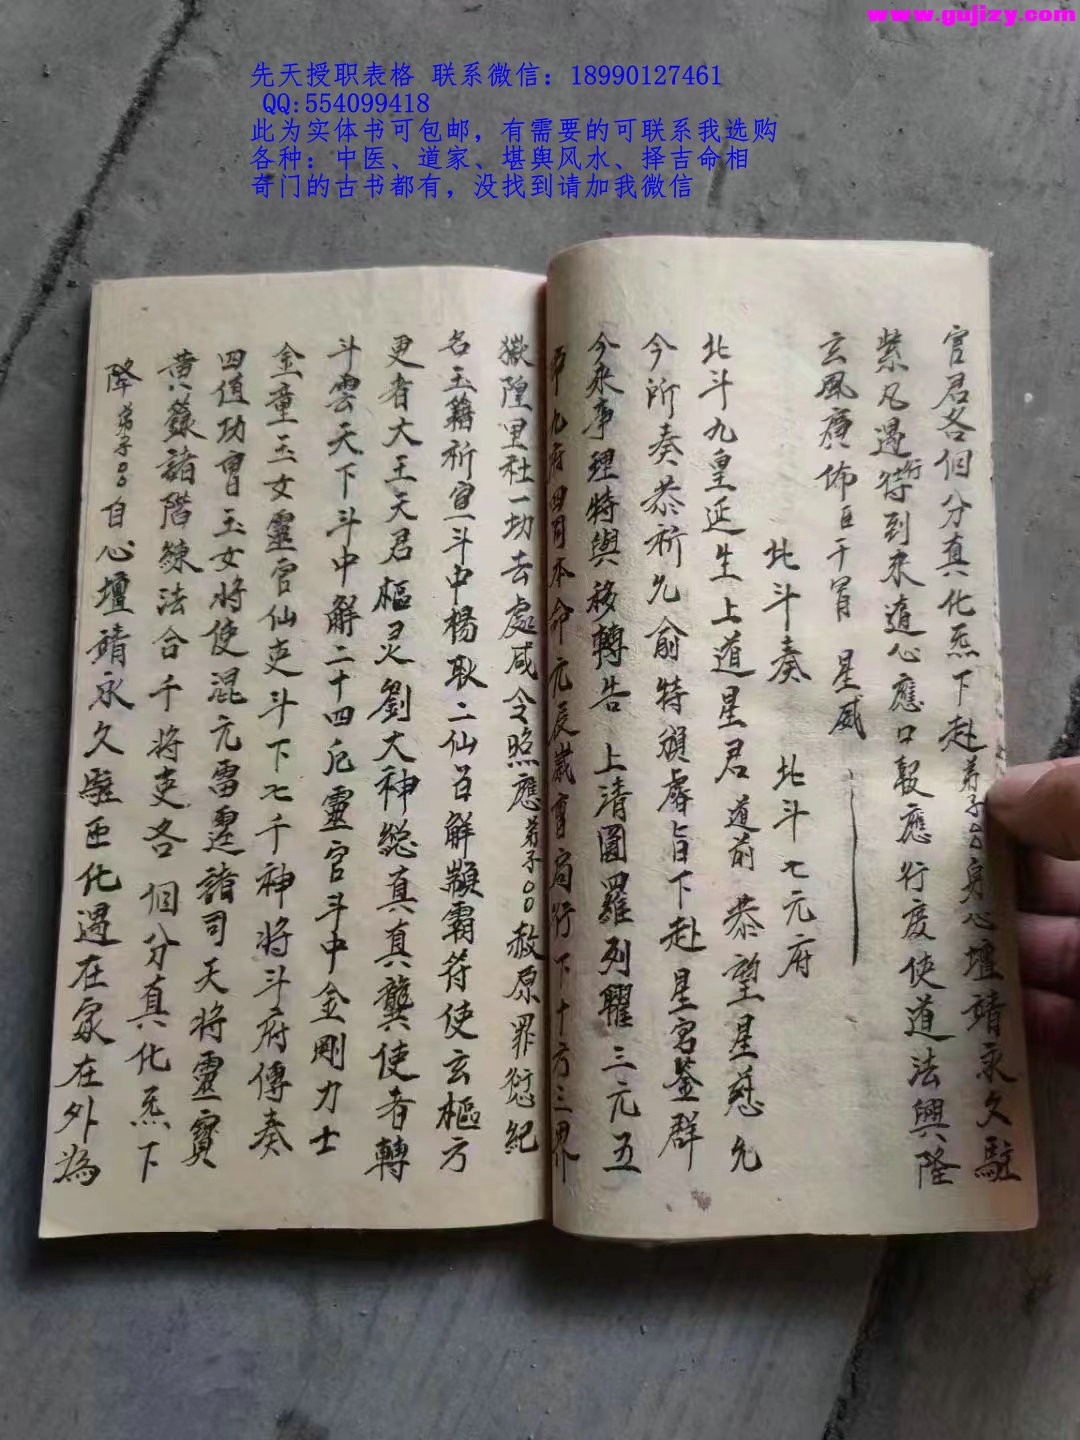 www.gujizy.com
先天授职表格 联系微信：18990127461
QQ:554099418
此为实体书可包邮，有需要的可联系我选购
各种：中医、道家、堪舆风水、择吉命相
奇门的古书都有，没找到请加我微信
官君各個分真化炁下赴弟子〇〇身心壇靖永久駐
紮凡遇行持到來道心應口報應行度使道法興隆
玄風廣佈臣干冒 星威
北斗奏 北斗七元府
北斗九皇延生上道星君 道前 恭望星慈允
今所奏恭祈允俞特頒睿旨下赴星宮鉴群
今來事理特與移轉告 上清圓羅列曜三元五
九府四司本命元辰歲會局行下十方三界
獄隍里社一切去處咸令照應弟子〇〇赦原罪愆紀
名玉籍祈宣斗中楊耿二仙官解顙霸符使玄樞方
更者大王天君樞灵劉大神總真真龔使者轉
斗雲天下斗中解二十四厄靈官斗中金剛力士
金童玉女靈官仙吏斗下七千神將斗府傳奏
四值功曹玉女將使混元雷霆諸司天將靈寶
黄籙諸階練法合千將吏各個分真化炁下
降弟子〇〇自心壇靖永久駐匝化遇在家在外為